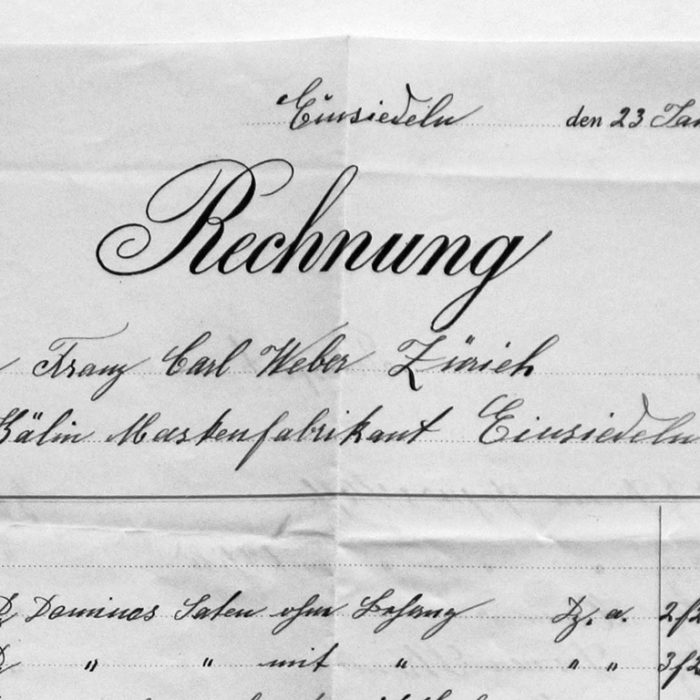 Einsiedeln den 23 Jan
Rechnung
Franz Carl Weber Zürich
Kälin Maskenfabrikant Einsiedeln
Dominos Saten ohne Behang Dz. a. 2f2
" " mit " " " 3f2